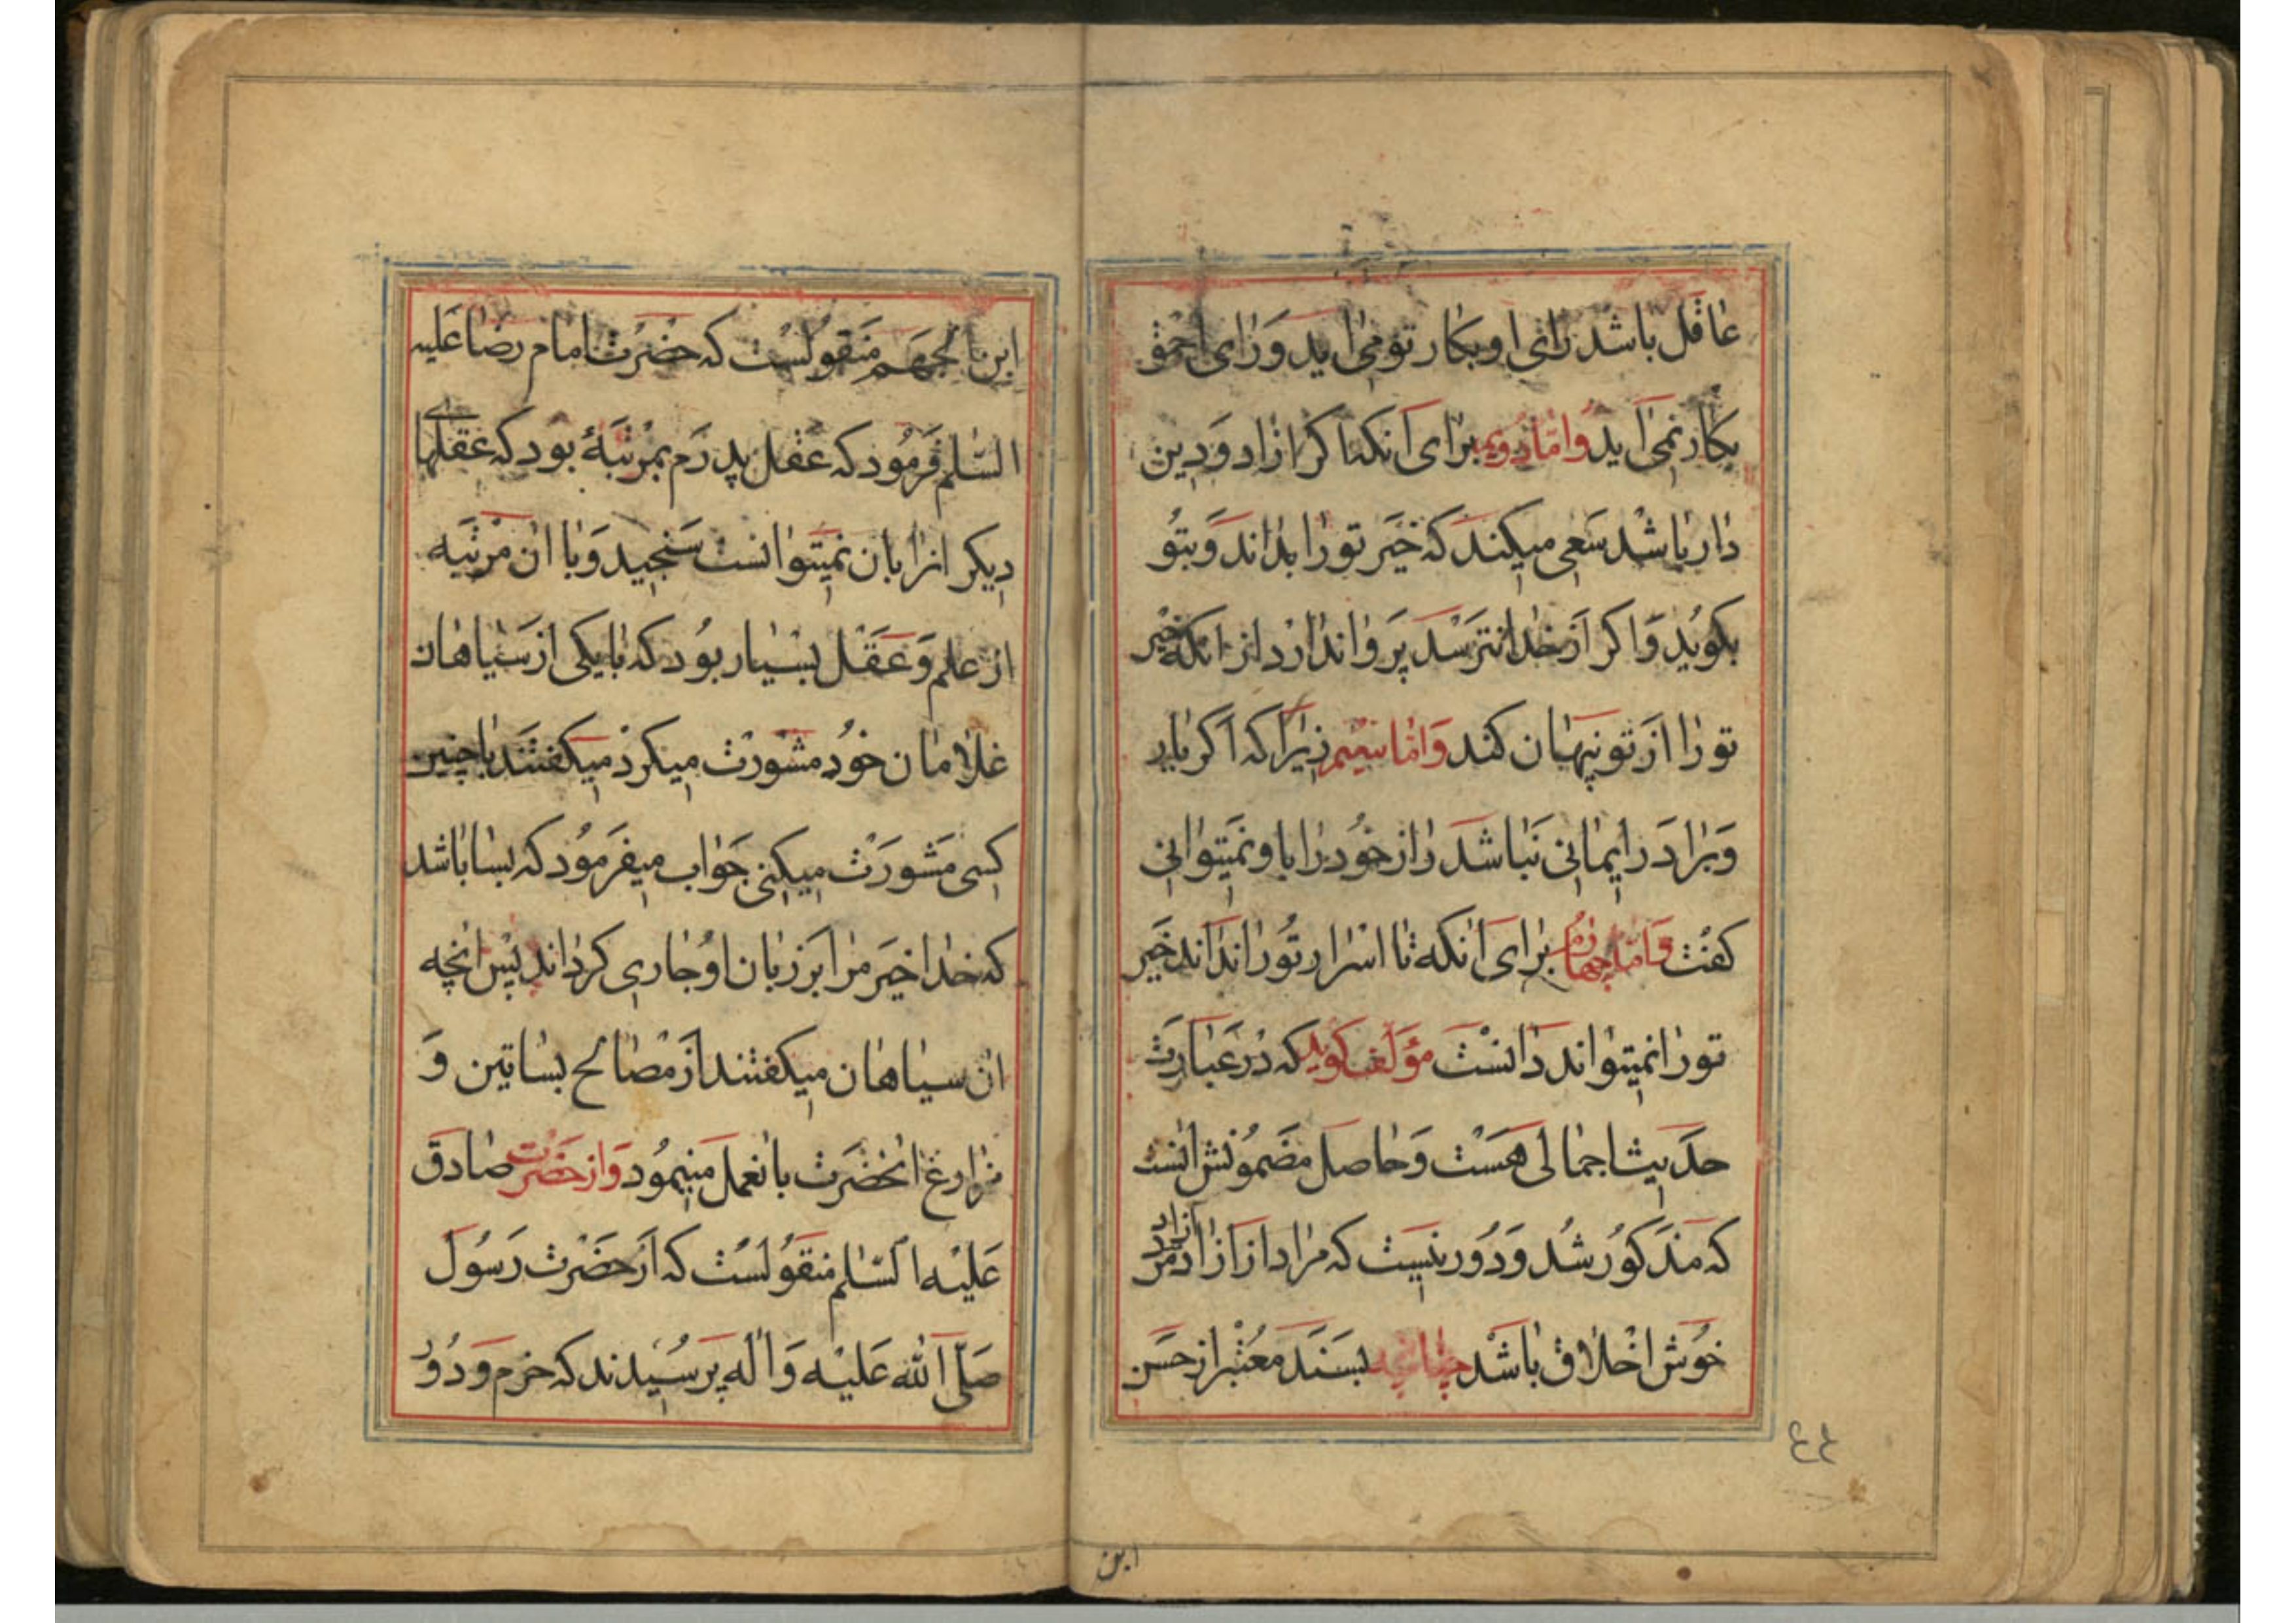 عاقل باشد رای او بکار تو می اید و رای احمق
بکار نمی آید و امّا دویم برای آنکه اگر ازاد و دین
دار باشد سعی میکند که خیر تو را بداند و بتو
بکوید و اکر از خدا نترسد پروا ندارد از انکه خیر
تو را از تو پنهان کند و امّا سیّم زیرا که اگر یار
و برادر ایمانی نباشد راز خود را با و نمیتوانی
کفت و امّا چهارم برای انکه تا اسرار تو را نداند خیر
تو را نمیتواند دانست مؤلف کوید که در عبارت
حدیث اجمالی هست و حاصل مضمونش انست
که مذکور شد و دور نیست که مراد از ازاد مرد
خوش اخلاق باشد چنانچه بسند معتبر از حسن
٤٤
ابن
ابن الجهم منقولست که حضرت امام رضا علیه
السّلم فرمود که عقل پدرم بمرتبهٔ بود که عقلهای
دیکر انرا بان نمیتوانست سنجید و با ان مرتبه
از علم و عقل بسیار بود که با یکی از سیاهان
غلامان خود مشورت میکرد میکفتند با چنین
کسی مشورت میکنی جواب میفرمود که بسا باشد
که خدا خیر مرا بر زبان او جاری کرداند پس انچه
ان سیاهان میکفتند از مصالح بساتین و
مزارع انحضرت بانعمل مینمود و از حضرت صادق
علیه السّلم منقولست که از حضرت رسول
صلّی الله علیه و اله پرسیدند که حزم و دور